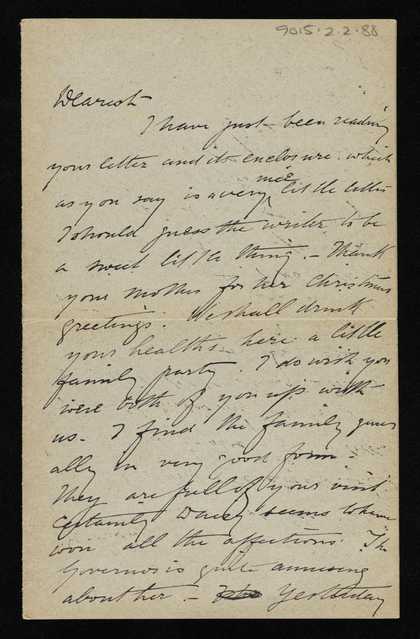 9015.2.2.88
Dearest
I have just been reading
your letter and its enclosure which
as you say is a very nice little letter
I should guess the writer to be
a sweet little thing. - Thank
your mother for her Christmas
greetings. We shall drink
your healths here a little
family party. I do wish you
were both of you up with
us. I find the family gener
ally in very good form.
They are full of your visit
Certainly seems to have
won all the affections. The
Governor is quite amusing
about her. - Yesterday